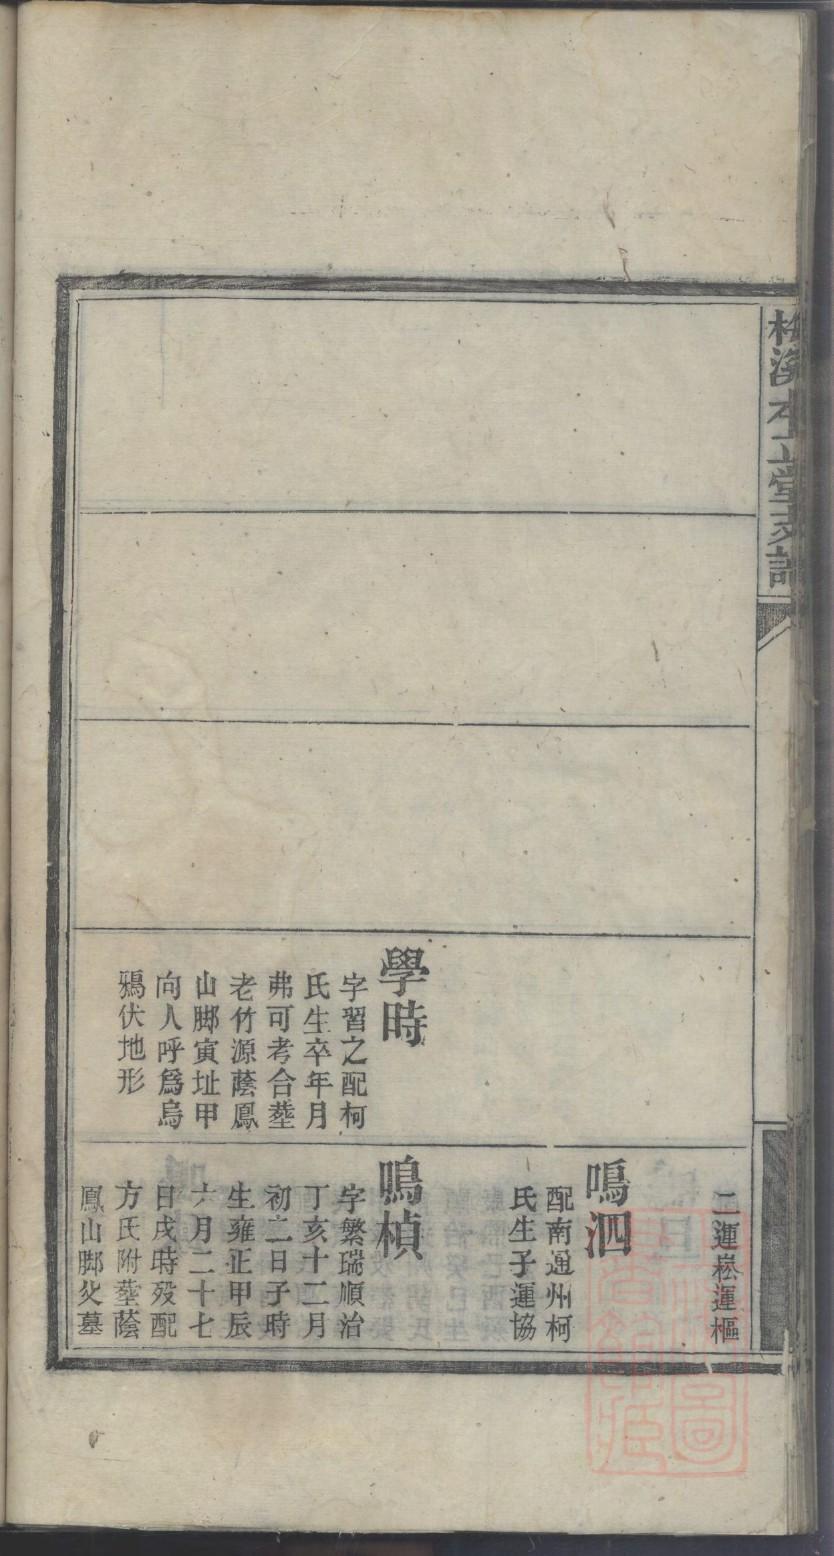 梅溪本立堂支譜
學時
字習之配柯
氏生卒年月
弗可考合塟
老竹源蔭鳳
山脚寅址甲
向人呼爲烏
鴉伏地形
二運崧運樞
鳴泗
配南通州柯
氏生子運協
鳴楨
字繁瑞順治
丁亥十二月
初二日子時
生雍正甲辰
六月二十七
日戌時殁配
方氏附塟蔭
鳳山脚父墓